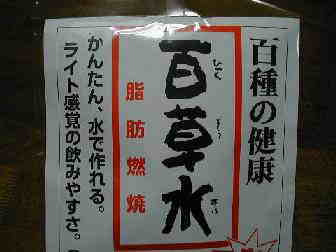 百種の健康
百草水
ひゃく
そう
脂肪燃焼
かんたん、水で作れる。
ライト感覚の飲みやすさ。